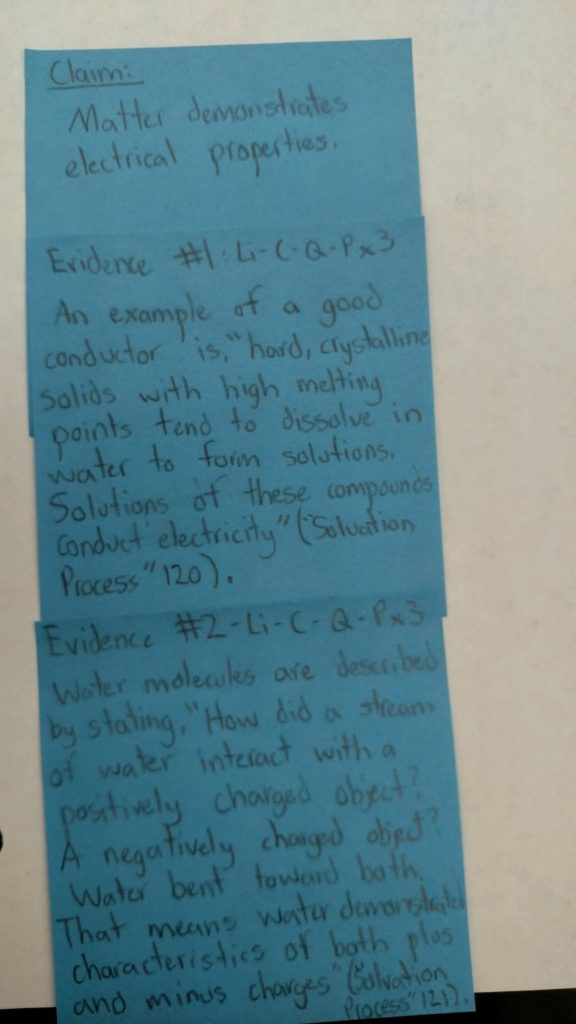 Claim:
Matter demonstrates
electrical properties.
Evidence #1: Li-C-Q-Px3
An example of a good
conductor is, "hard, crystalline
solids with high melting
points tend to dissolve in
water to form solutions.
Solutions of these compounds
conduct electricity" ("Solvation
Process" 120).
Evidence #2-Li-C-Q-Px3
Water molecules are described
by stating, "How did a stream
of water interact with a
positively charged object?
A negatively charged object?
Water bent toward both.
That means water demonstrated
characteristics of both plus
and minus charges" ("Solvation
Process" 121).